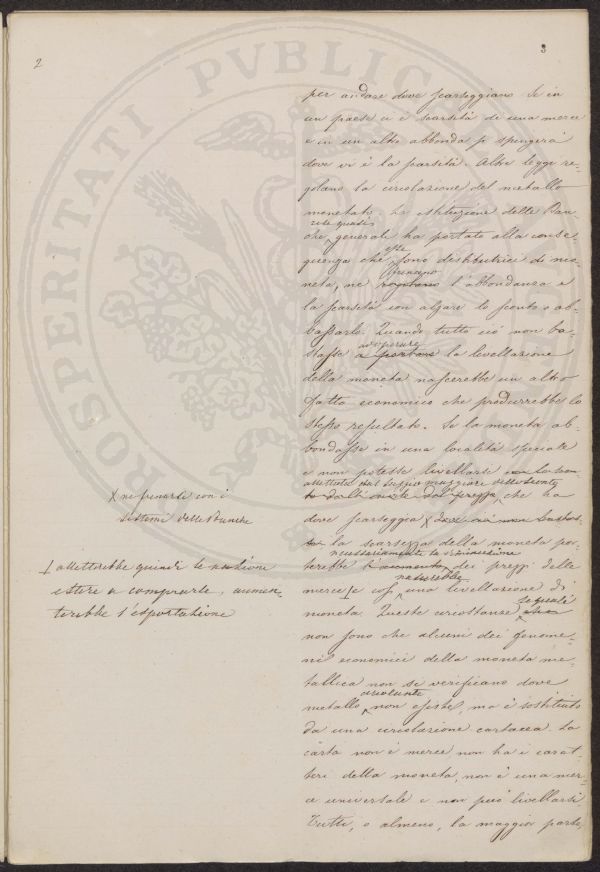 2
3
per andare dove scarseggiano. Se in
un paese ci è scarsità di una merce
e in un altro abbonda si spingerà
dove vi è la scarsità. Altre leggi re-
golano la circolazione del metallo
monetato. La istituzione delle Ban-
rese quasi
che generali ha portato alla conse-
esse
guenza che sono distributrici di mo-
frenano
neta, ne l'abbondanza e
la scarsità con alzare lo sconto o ab-
bassarlo. Quando tutto ciò non ba-
adoperare
stasse a portare la livellazione
della moneta nascerebbe un altro
fatto economico che produrrebbe lo
stesso resultato. Se la moneta ab-
bondasse in una località speciale
e non potesse livellarsi
allettata dal saggio maggiore dello sconto
che ha
dove scarseggia X
la scarsezza della moneta por-
necessariamente la diminuzione
terebbe l'aumento dei prezzi delle
nascerebbe
merci e così una livellazione di
le quali
moneta. Queste circostanze che
non sono che alcuni dei fenome-
ni economici della moneta me-
tallica non si verificano dove
circolante
metallo non esiste, ma è sostituito
da una circolazione cartacea. La
carta non è merce non ha i carat-
teri della moneta, non è una mer-
ce universale e non può livellarsi
Tutti, o almeno, la maggior parte,
X nè frenarsi con i
sistemi delle Banche
alletterebbe quindi le nazione
estere a comprarle, aumen-
terebbe l'esportazione
PROSPERITATI PVBLICAE